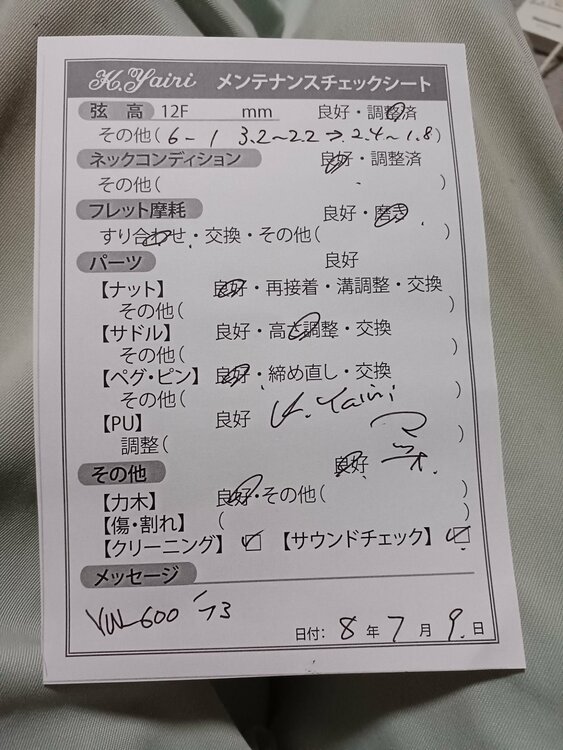 K.Yairi メンテナンスチェックシート
弦高 12F mm 良好・調整済
その他(6-1 3.2~2.2→2.4~1.8)
ネックコンディション 良好・調整済
その他( )
フレット摩耗 良好・磨き
すり合わせ・交換・その他( )
パーツ 良好
【ナット】 良好・再接着・溝調整・交換
その他( )
【サドル】 良好・高さ調整・交換
その他( )
【ペグ・ピン】 良好・締め直し・交換
その他( )
【PU】 良好 K.Yairi
調整( )
その他 良好
【力木】 良好・その他( )
【傷・割れ】 ( )
【クリーニング】 ☑ 【サウンドチェック】 ☑
メッセージ
YW-600 '73
日付: 8年7月9日